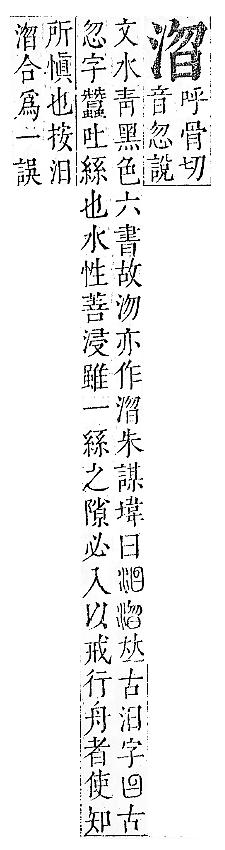 呼骨切
音忽說
文水靑黑色六書故沕亦作朱謀㙔曰𠀤古汨字古
忽字蠶吐絲也水性善浸雖一絲之隙必入以戒行舟者使知
所愼也按汨
合爲一誤